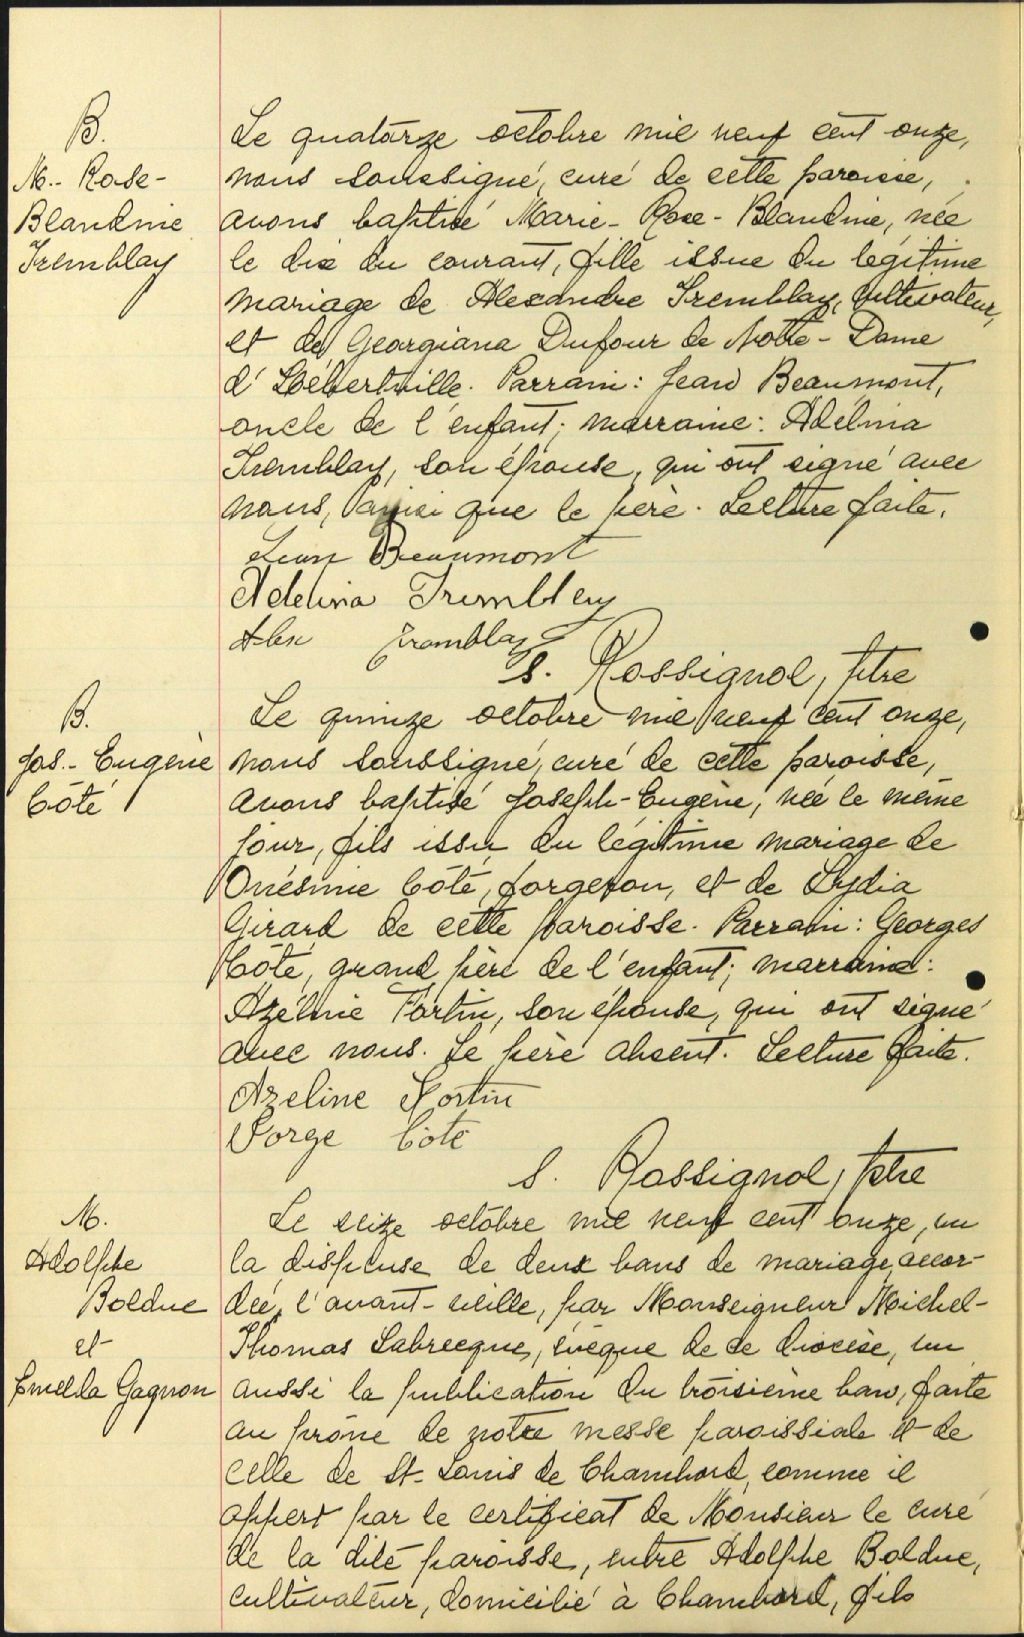 B.
M.- Rose-
Blandine
Tremblay
Le quatorze octobre mil neuf cent onze,
nous soussigné, curé de cette paroisse,
avons baptisé Marie-Rose-Blandine, née
le dix du courant, fille issue du légitime
mariage de Alexandre Tremblay, cultivateur,
et de Georgiana Dufour de Notre-Dame
d'Hébertville. Parrain: Jean Beaumont,
oncle de l'enfant; marraine: Adélina
Tremblay, son épouse, qui ont signé avec
nous, ainsi que le père. Lecture faite.
Jean Beaumont
Adelina Trembley
Alex Tremblay
S. Rossignol, ptre
B.
Jos.- Eugène
Côté
Le quinze octobre mil neuf cent onze,
nous soussigné, curé de cette paroisse,
avons baptisé Joseph-Eugène, né le même
jour, fils issu du légitime mariage de
Onésime Côté, forgeron, et de Lydia
Girard de cette paroisse. Parrain: Georges
Côté, grand père de l'enfant; marraine:
Azéline Fortin, son épouse, qui ont signé
avec nous. Le père absent. Lecture faite.
Azeline Fortin
Gorge Coté
S. Rossignol, ptre
M.
Adolphe
Bolduc
et
Emelda Gagnon
Le seize octobre mil neuf cent onze, vu
la dispense de deux bans de mariage, accor-
dée, l'avant-veille, par Monseigneur Michel-
Thomas Labrecque, évêque de ce diocèse, vu
aussi la publication du troisième ban, faite
au prône de notre messe paroissiale et de
celle de St-Louis de Chambord, comme il
appert par le certificat de Monsieur le curé
de la dite paroisse, entre Adolphe Bolduc,
cultivateur, domicilié à Chambord, fils